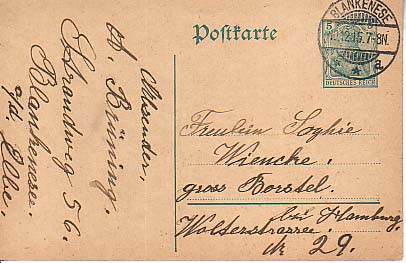 Postkarte
BLANKENESE
12.15.7-8N.
a
5
DEUTSCHES REICH
Absender.
A. Brüning.
Strandweg 56.
Blankenese.
a/d. Elbe.
Freulein Sophie
Wiencke.
gross Borstel.
bei Hamburg.
Wolterstrasse.
№ 29.